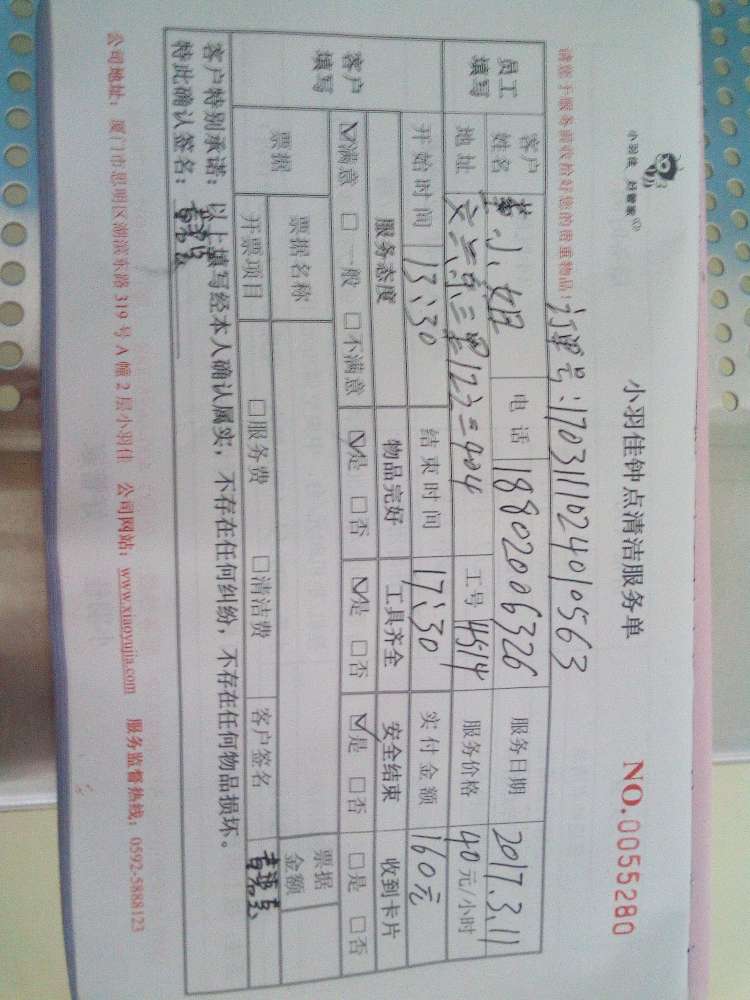 小羽佳 好管家
小羽佳钟点清洁服务单
NO.0055280
请您于服务前收拾好您的贵重物品!
订单号:1703111024010563
员工填写 客户姓名 小姐 电话 18802006326 服务日期 2017.3.11
地址 工号 4514 服务价格 40元/小时
开始时间 13:30 结束时间 17:30 实付金额 160元
客户填写 服务态度 物品完好 工具齐全 安全结束 收到卡片
☑满意 □一般 □不满意 ☑是 □否 ☑是 □否 ☑是 □否 □是 □否
票据 票据名称 票据金额
开票项目 □服务费 □清洁费 客户签名
客户特别承诺:以上填写经本人确认属实,不存在任何纠纷,不存在任何物品损坏。
特此确认签名:
公司地址:厦门市思明区湖滨东路319号A幢2层小羽佳 公司网站:www.xiaoyujia.com 服务监督热线:0592-5888123